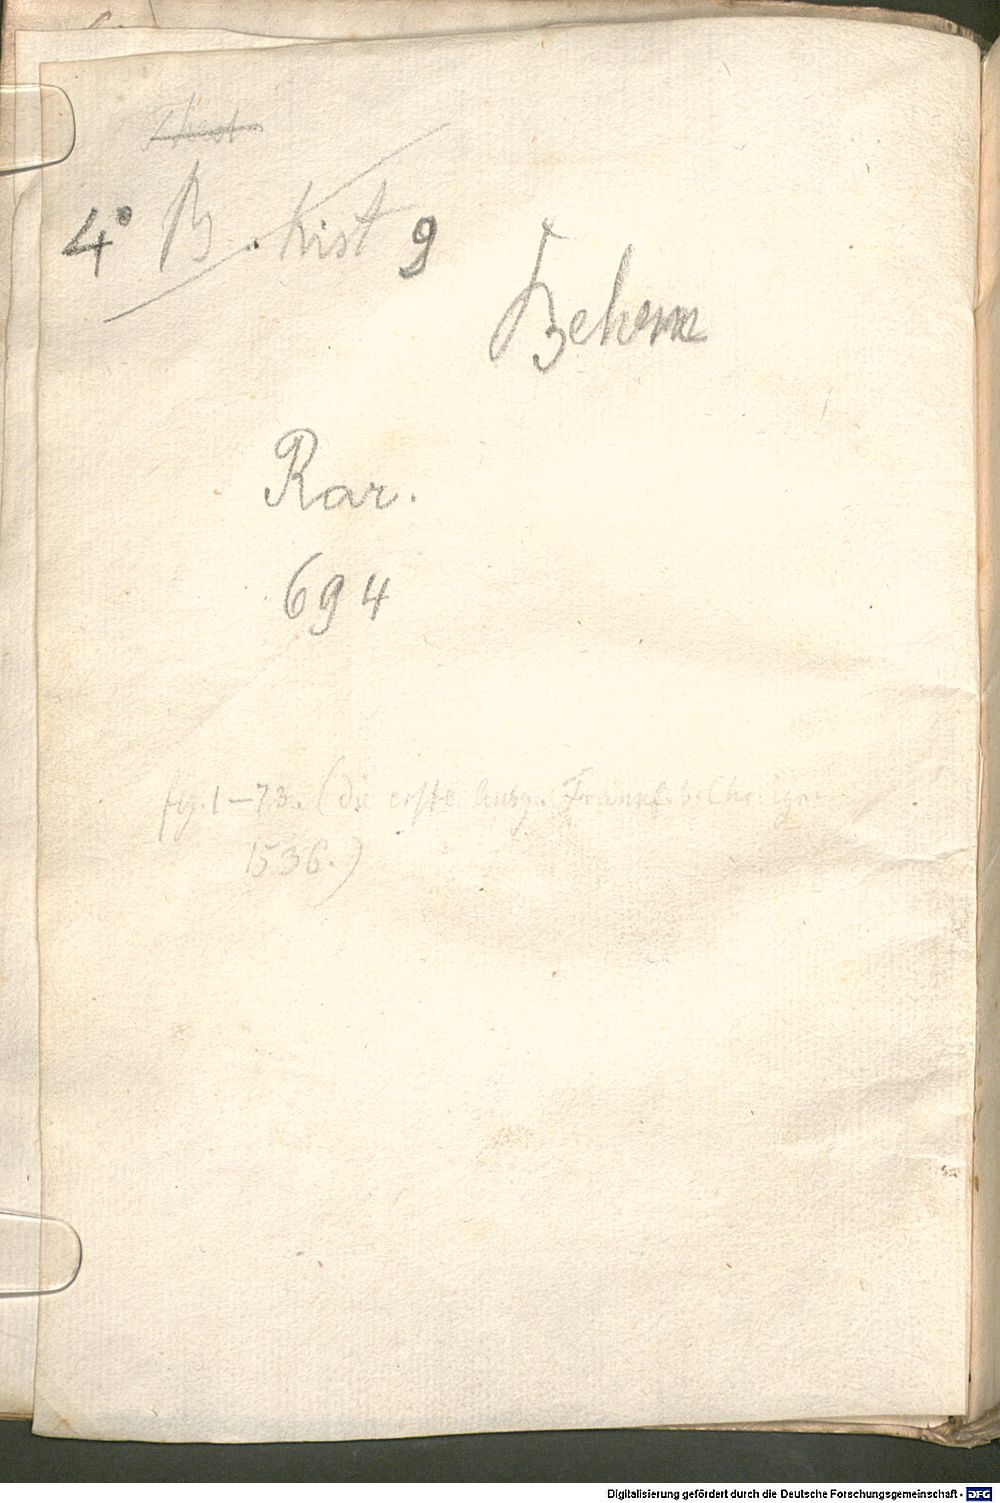 4° B. hist 9
Behem
Rar.
694
fig. 1–73. (die erste Ausg. Frankf. b. Chr. Egen.
1536.)
Digitalisierung gefördert durch die Deutsche Forschungsgemeinschaft - DFG